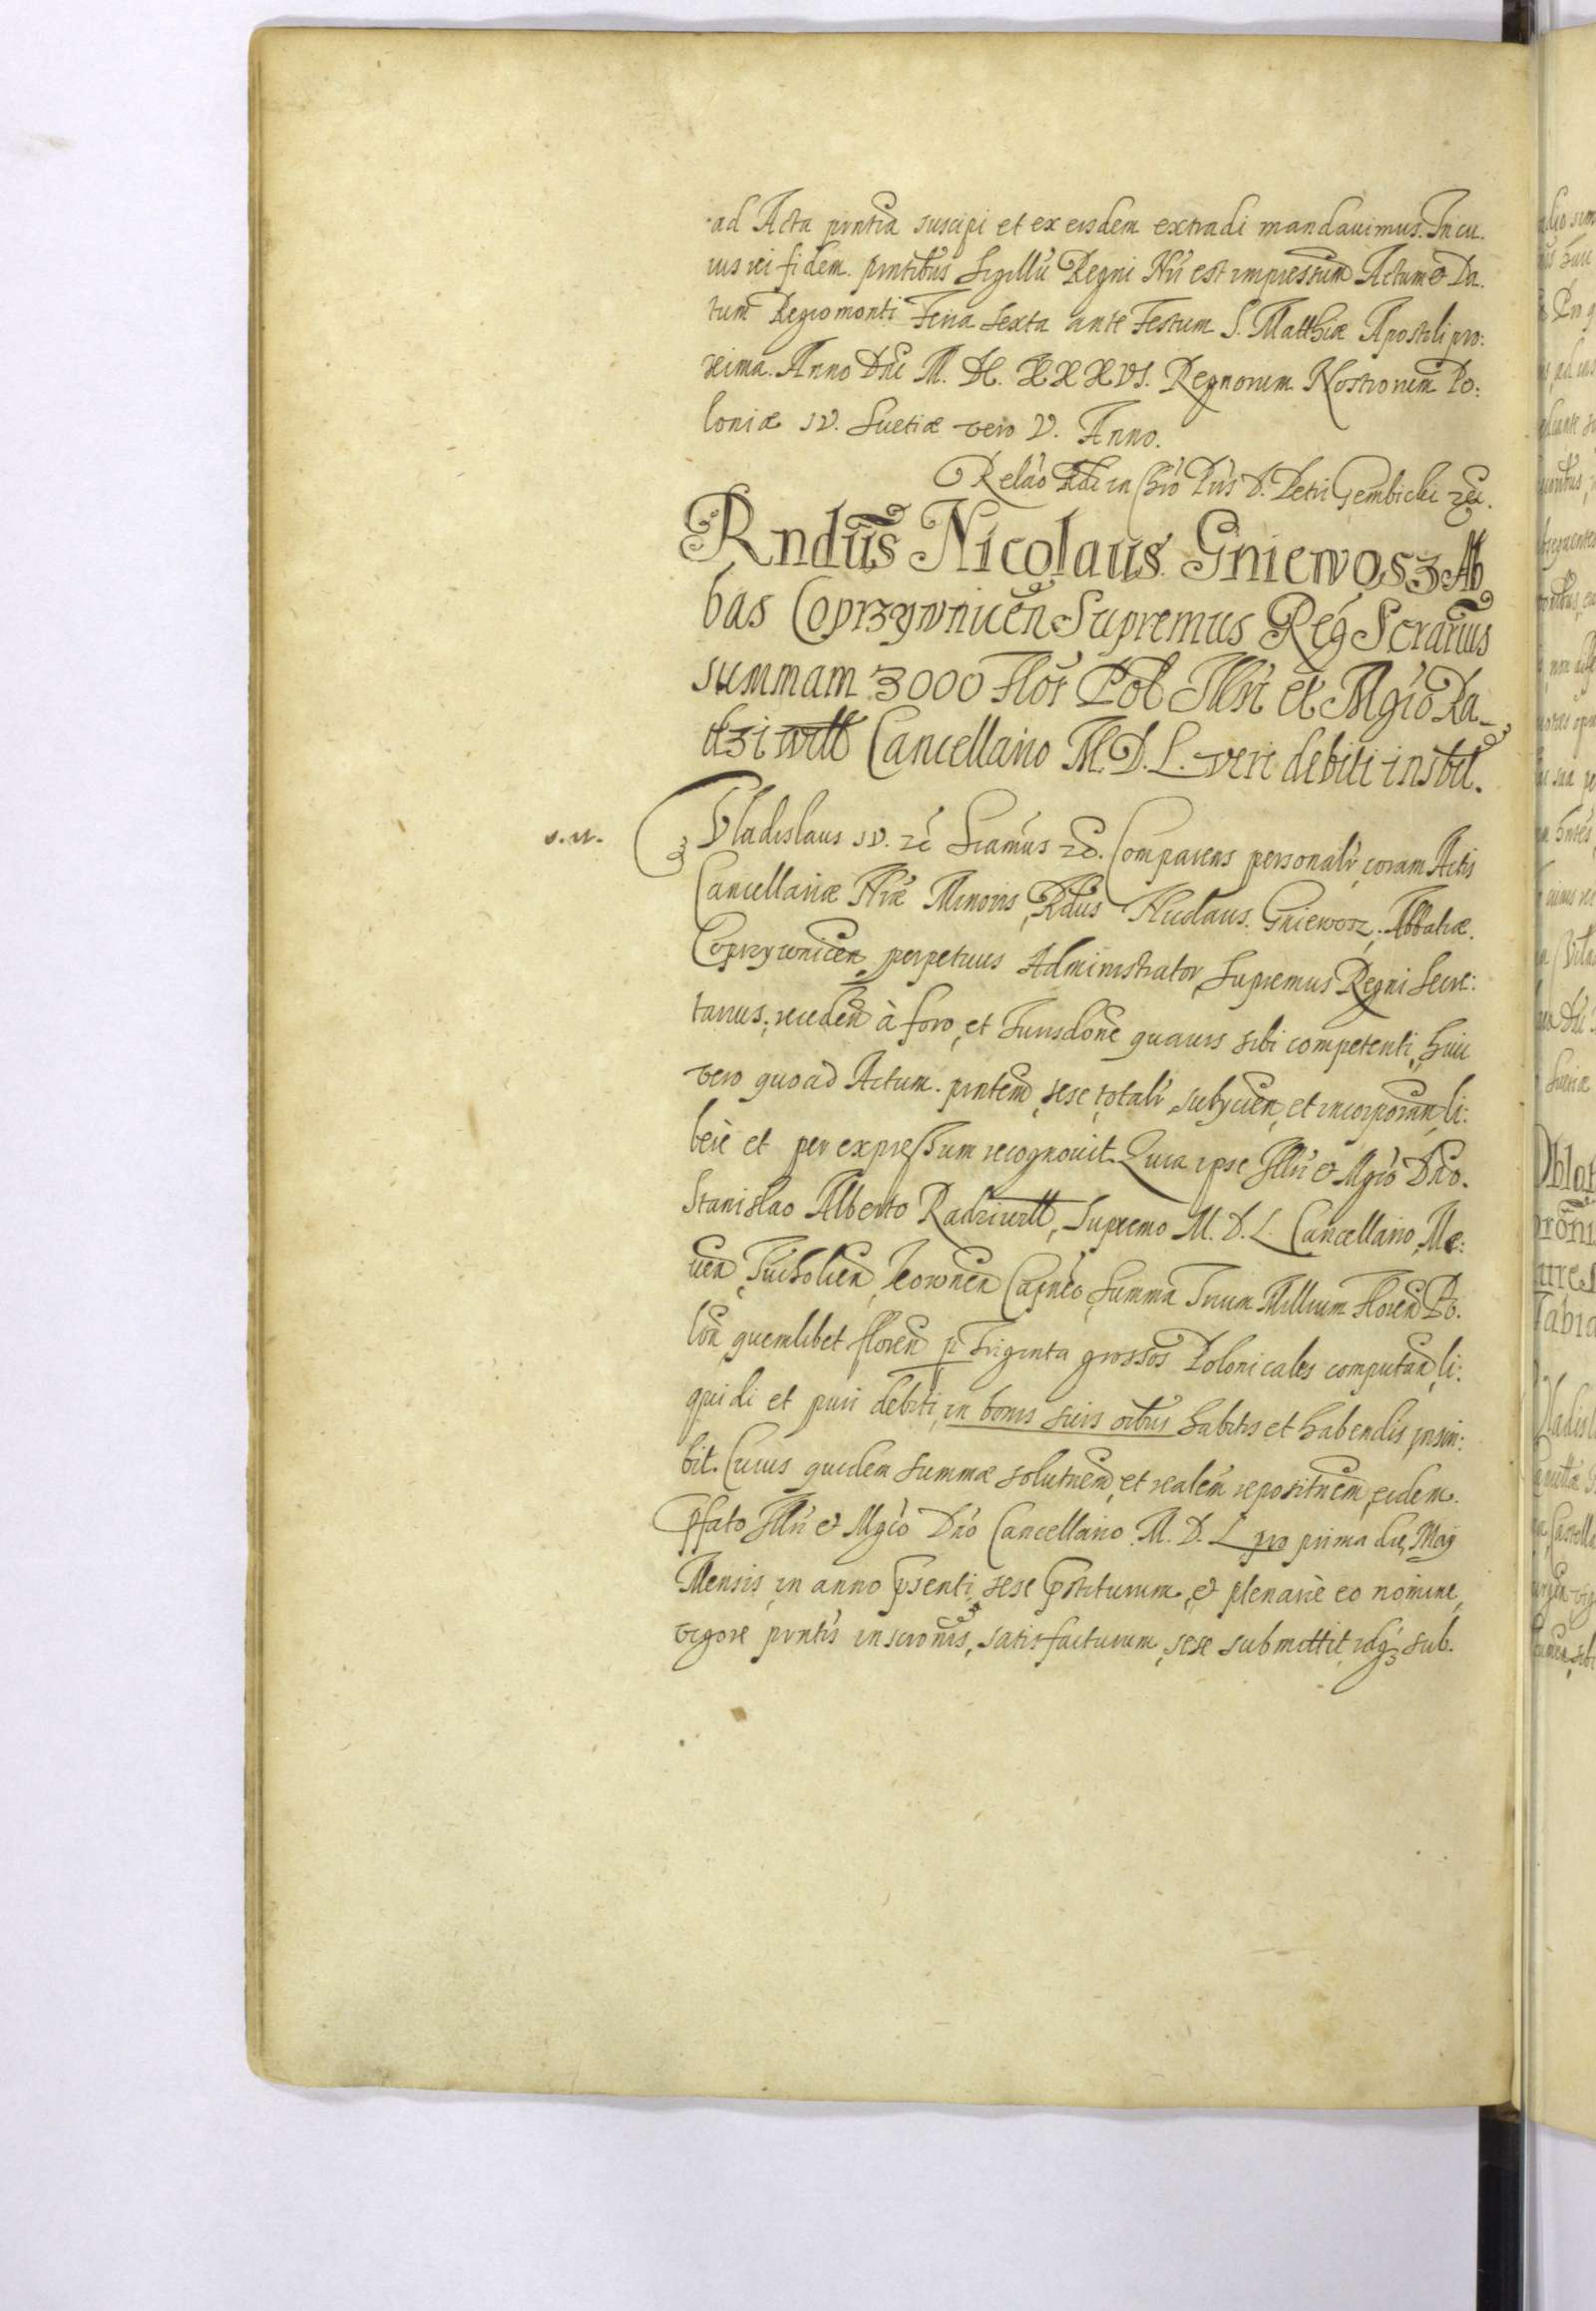 ad Acta pnntia suscipi et ex eisdem extradi mandauimus. In cu.
ius rei fidem pntibus Sigillū Regni Nri est impressum Actum et Da.
tum Regiomonti Feria Sexta ante Festum S. Matthiæ Apostoli pro:
xima. Anno Dni M. DC. XXXVI. Regnorum Nostrorum Po:
loniæ IV. Suetiæ vero V. Anno.
Relāo Rdi in Chrō Pris D. Petri Gembicki
Rndūs Nicolaus Gniewosz Ab
bas Coprzywnicen̄ Supremus Reg Scrārius
summam 3000 Flor Pol Illri et Mgco Ra-
dziwill Cancellario M. D. L. veri debiti insbit.
s.n. Vladislaus IV. rc Signamus rc. Comparens personalr coram Actis
Cancellariæ Nræ Minoris, Rdus Nicolaus Gniewosz, Abbatiæ
Coprzywnicen perpetuus Administrator, Supremus Regni Secre:
tarius, receden à foro, et Iurisdōne quauis sibi competenti, huic
vero quoad Actum pntem, sese totalr subycien, et incorporan, li:
berè et per expressum recognouit. Quia ipse Illri et Mgco Dno.
Stanislao Alberto Radziwill, Supremo M. D. L. Cancellario, Me:
uen, Tucholien, Kownen Capneo, Summā Trium Millium Floren Po.
lon quemlibet floren p Triginta grossos Polonicales computan, li:
quidi et puri debiti, in bonis suis oibus habitis et habendis inscri:
bit. Cuius quidem summæ solutnem, et realem repositnem, eidem
pfato Illri et Mgco Dno Cancellario M. D. L. pro prima die Maij
Mensis, in anno psenti, sese pstiturum, et plenariè eo nomine,
vigore pntis inscrionis, satisfacturum, sese submittit, idq₃ sub.